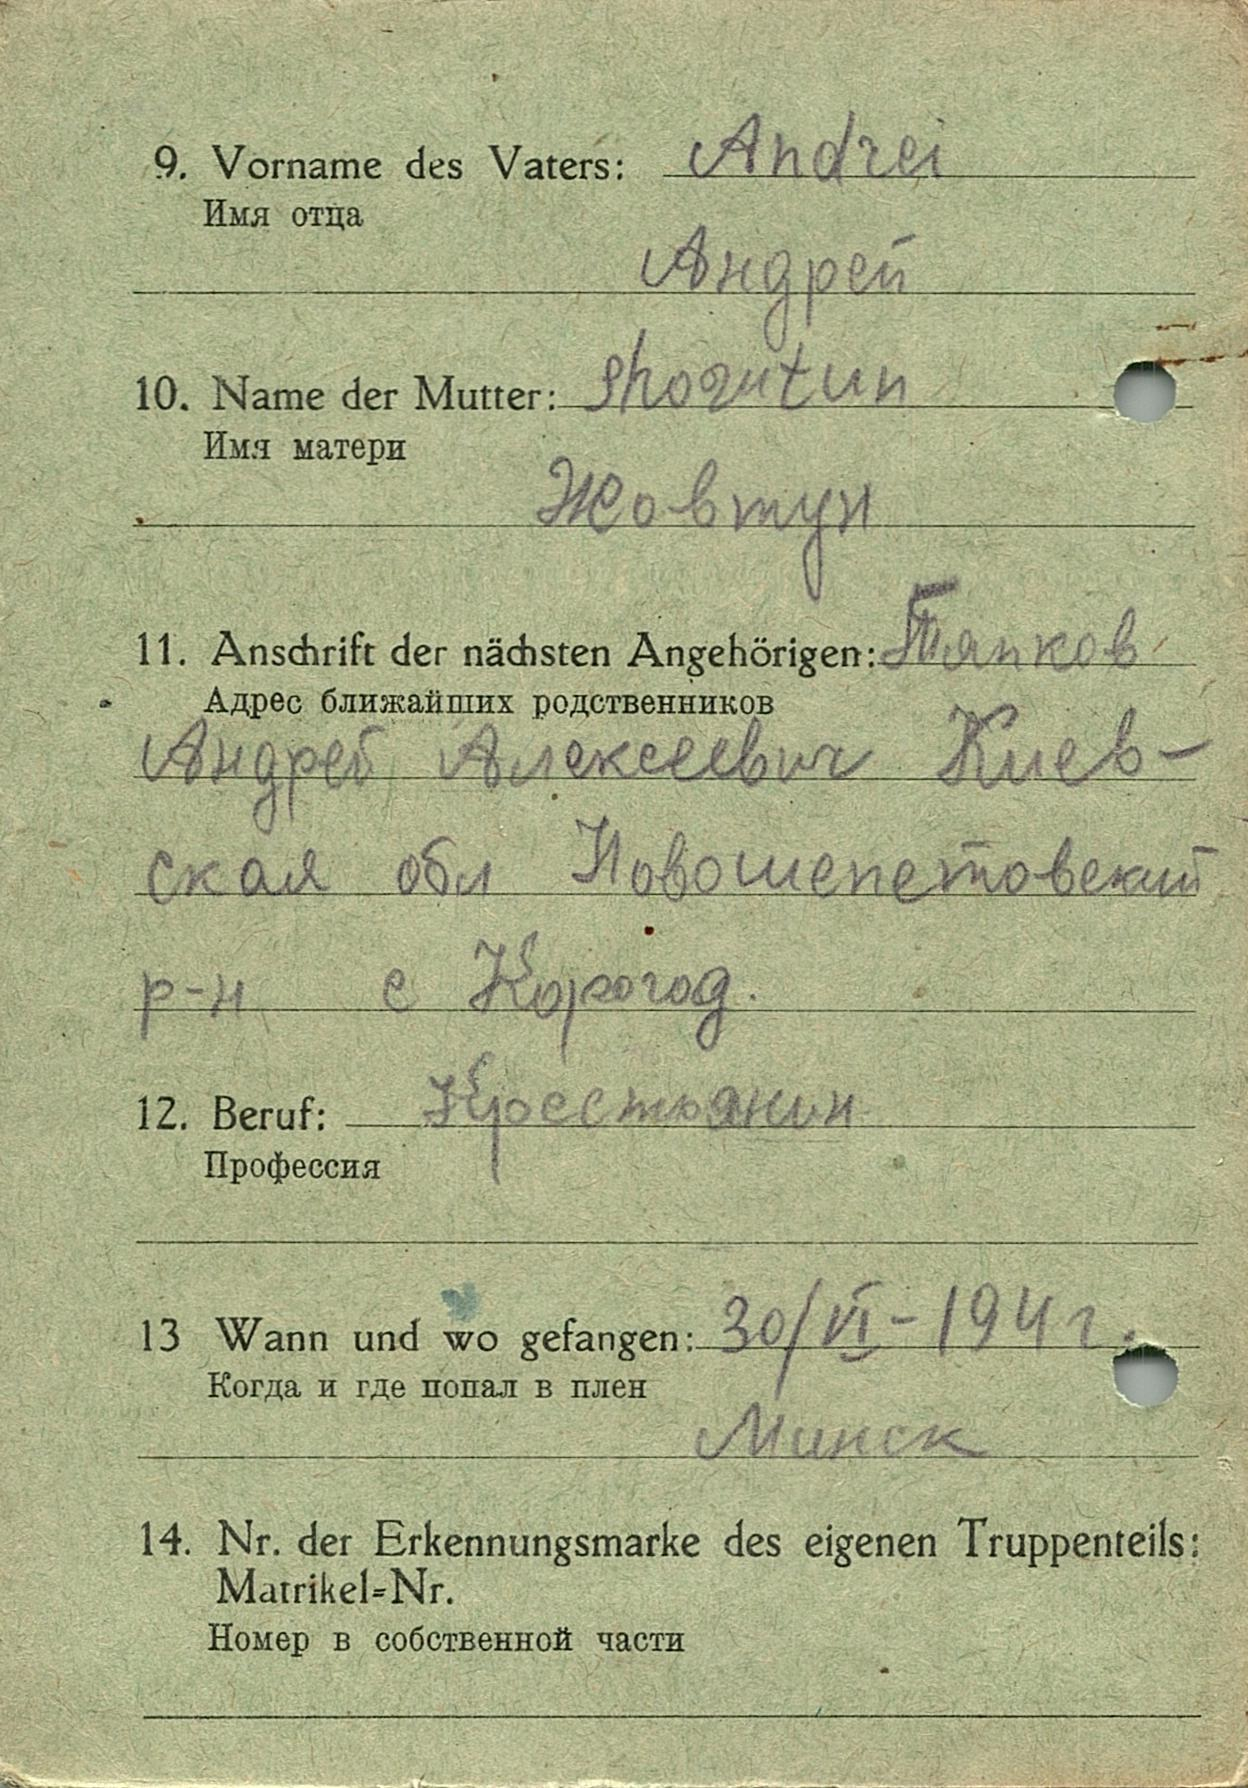 9. Vorname des Vaters: Andrei
Имя отца
Андрей
10. Name der Mutter:
Имя матери
Жовтун
11. Anschrift der nächsten Angehörigen: Тяпков
Адрес ближайших родственников
Андрей Алексеевич Киев-
ская обл Новошепетовский
р-н с Корогод.
12. Beruf: Крестьянин
Профессия
13 Wann und wo gefangen: 30/VI-1941 г.
Когда и где попал в плен
Минск
14. Nr. der Erkennungsmarke des eigenen Truppenteils:
Matrikel=Nr.
Номер в собственной части